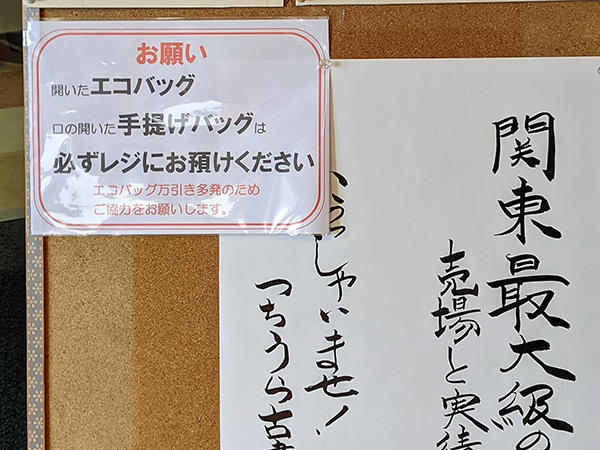 お願い
開いたエコバッグ
口の開いた手提げバッグは
必ずレジにお預けください
エコバッグ万引き多発のため
ご協力をお願いします。
関東最大級の
売場と実績
らっしゃいませ！
つちうら古書